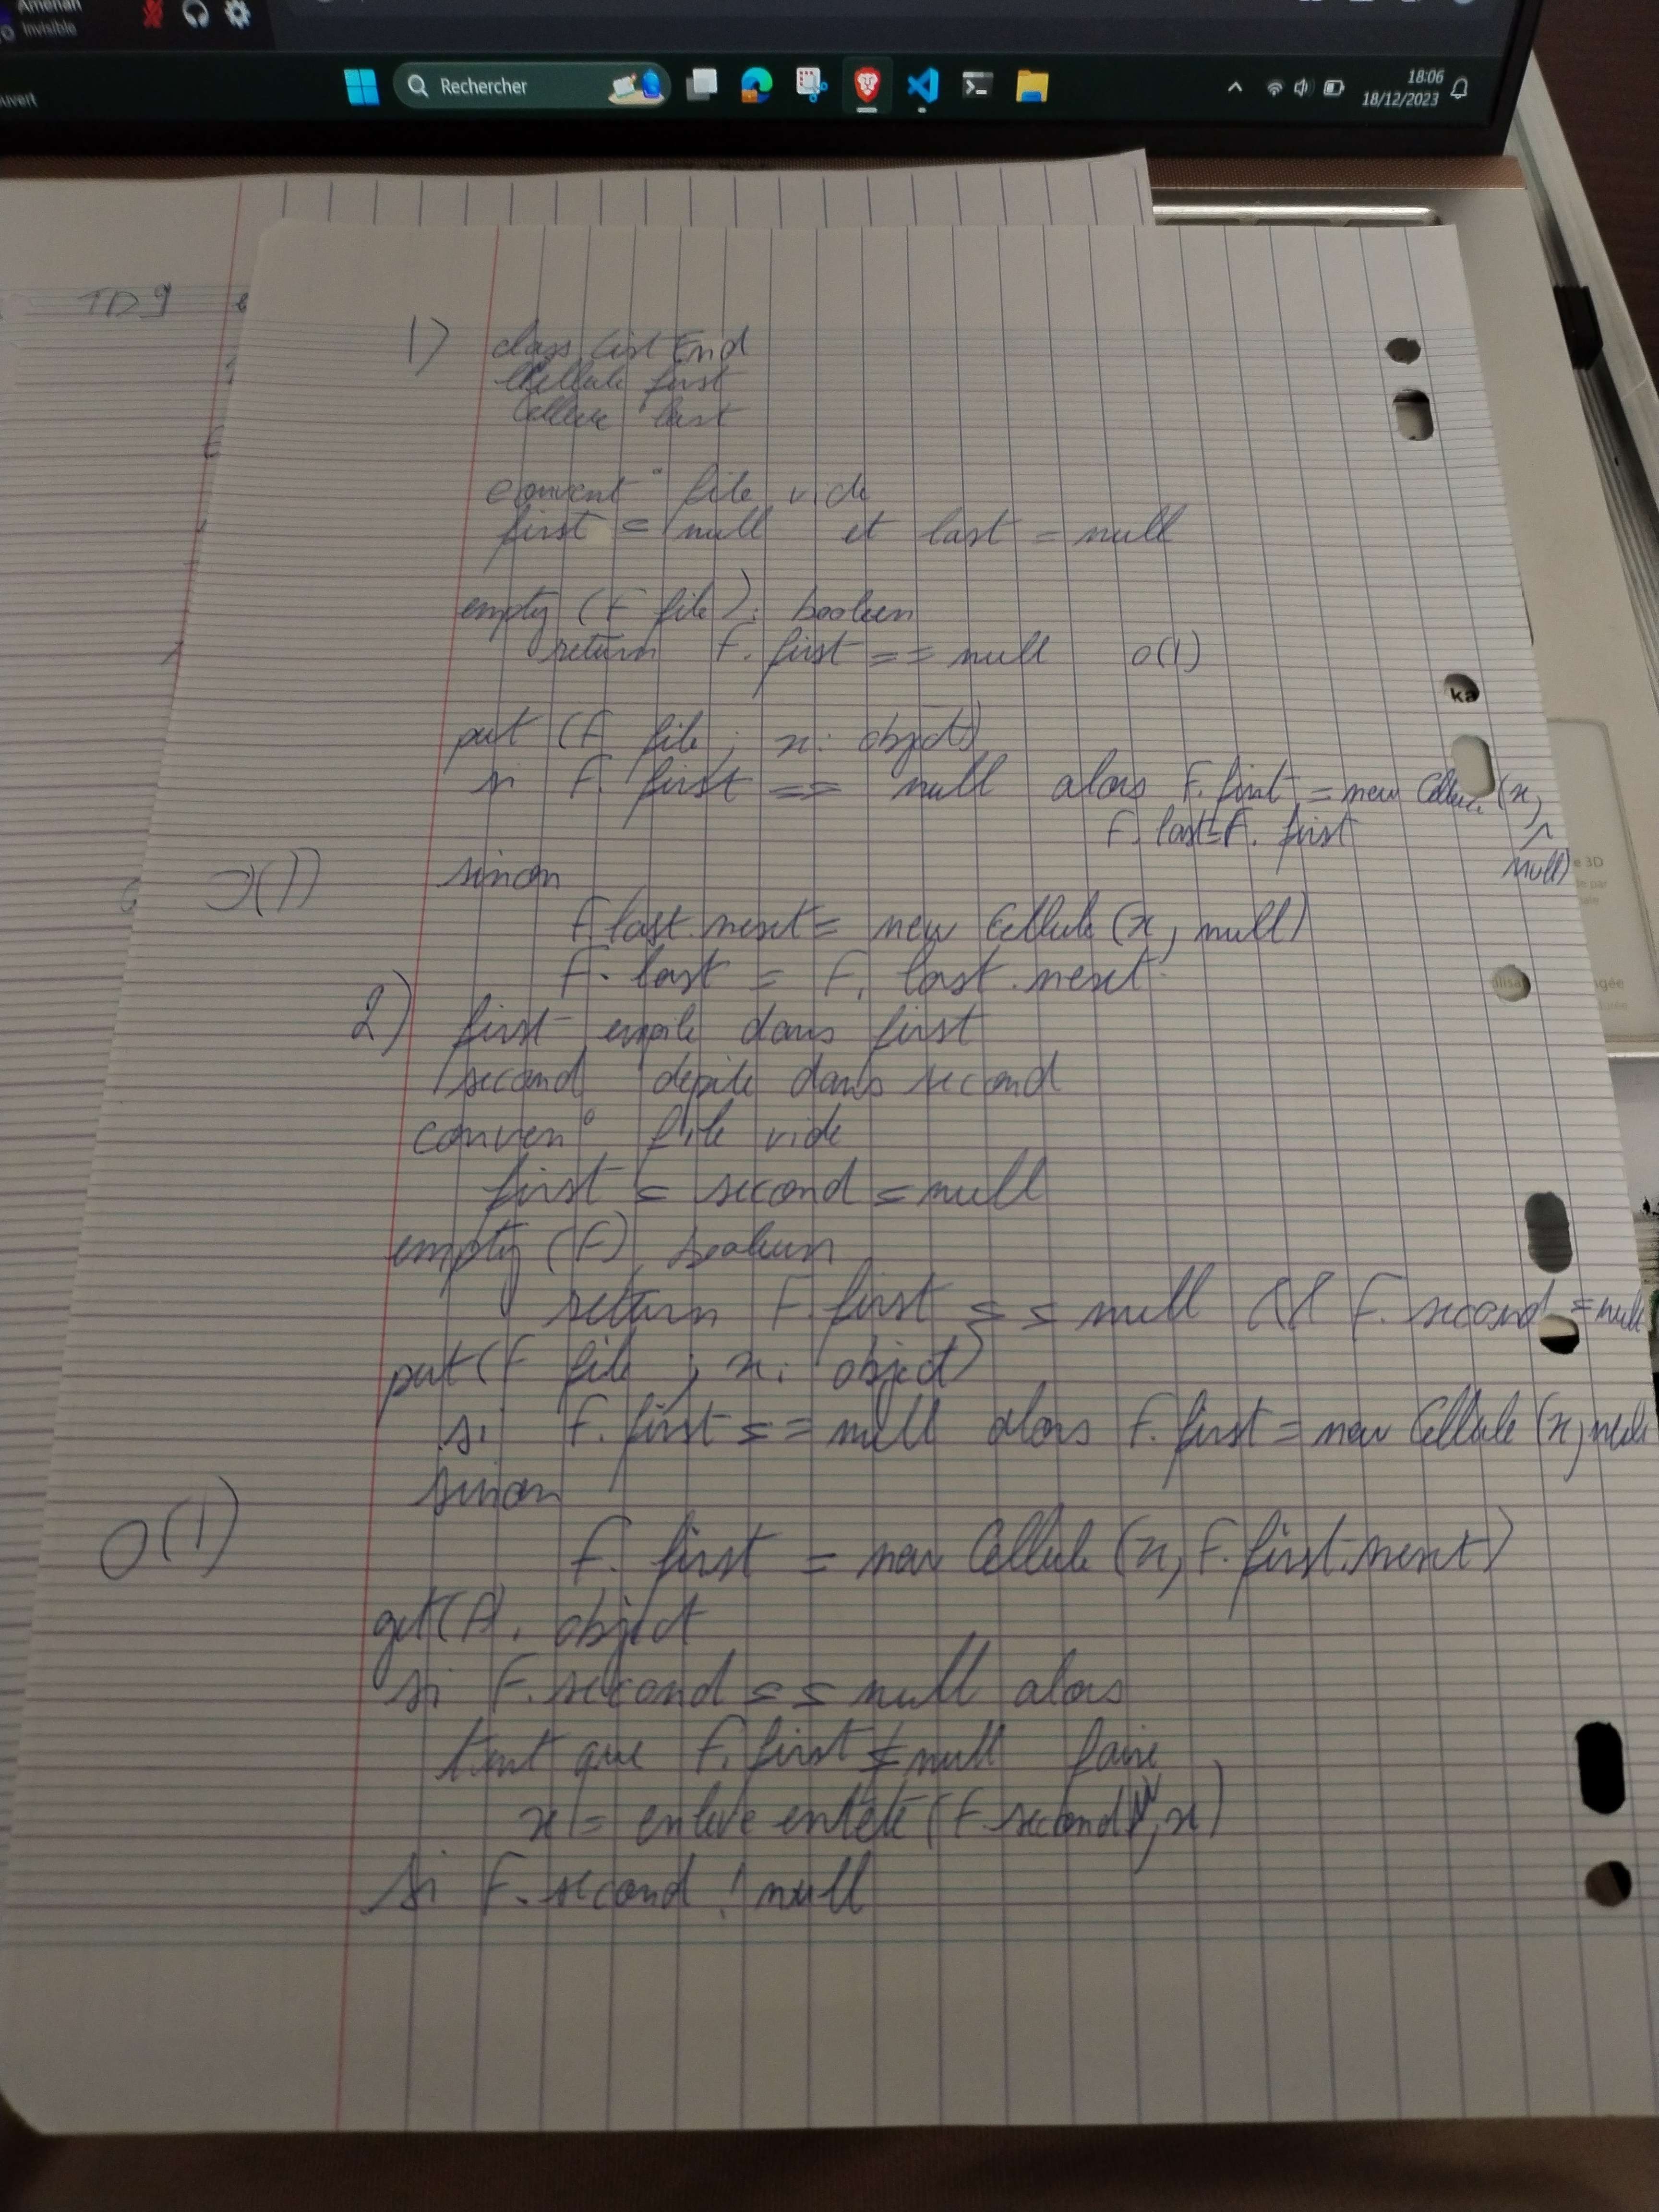 Amenan
Invisible
uvert
Rechercher
18:06
18/12/2023
TD9
1) class List End
Cellule first
Cellule last
convent° file vide
first = null et last = null
empty (F file): boolean
return F. first == null O(1)
put (F file ; x: object)
si F. first == null alors F. first = new Cellule (x,
null)
F. last = F. first
O(1) sinon
F last.next = new Cellule (x, null)
F. last = F. last.next
2) first empile dans first
second depile dans second
conven° file vide
first = second = null
empty (F) boolean
return F. first == null && F. second = null
put (F file ; x: object)
si F. first == null alors F. first = new Cellule (x, null
sinon
O(1) F. first = new Cellule (x, F. first.next)
get(F). object
si F. second == null alors
tant que F. first ≠ null faire
x = enleve entête (F second, x)
si F. second ! null
ka
e 3D
e par
ilisa
ngée